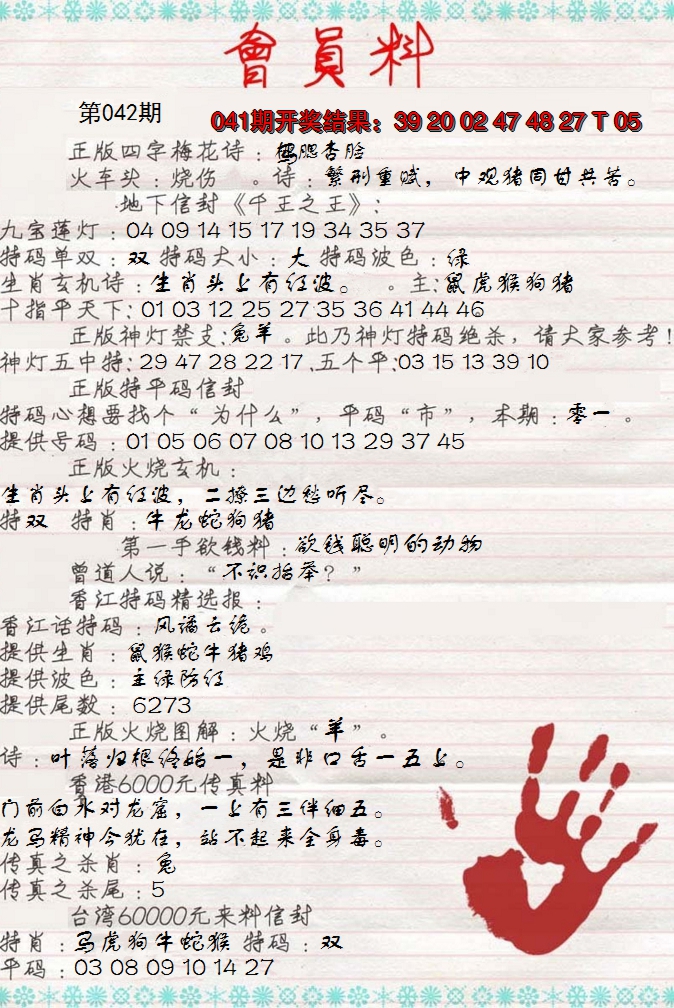 會員料
第042期
041期开奖结果：39 20 02 47 48 27 T 05
正版四字梅花诗：桃腮杏脸
火车头：烧伤 。诗：繁刑重赋，中观猪同甘共苦。
地下信封《千王之王》：
九宝莲灯：04 09 14 15 17 19 34 35 37
特码单双：双 特码大小：大 特码波色：绿
生肖玄机诗：生肖头上有红波。 。主：鼠虎猴狗猪
十指平天下：01 03 12 25 27 35 36 41 44 46
正版神灯禁支：兔羊 。此乃神灯特码绝杀，请大家参考！
神灯五中特：29 47 28 22 17 .五个平：03 15 13 39 10
正版特平码信封
特码心想要找个“为什么”，平码“市”，本期：零一 。
提供号码：01 05 06 07 08 10 13 29 37 45
正版火烧玄机：
生肖头上有红波，二撩三边愁听尽。
特双 特肖：牛龙蛇狗猪
第一手欲钱料：欲钱聪明的动物
曾道人说：“不识抬举？”
香江特码精选报：
香江话特码：风谲云诡。
提供生肖：鼠猴蛇牛猪鸡
提供波色：主绿防红
提供尾数：6273
正版火烧图解：火烧“羊”。
诗：叶落归根终始一，是非口舌一五上。
香港6000元传真料
门前白水对龙窟，一上有三伴细五。
龙马精神今犹在，站不起来全身毒。
传真之杀肖：兔
传真之杀尾：5
台湾60000元来料信封
特肖：马虎狗牛蛇猴 特码：双
平码：03 08 09 10 14 27